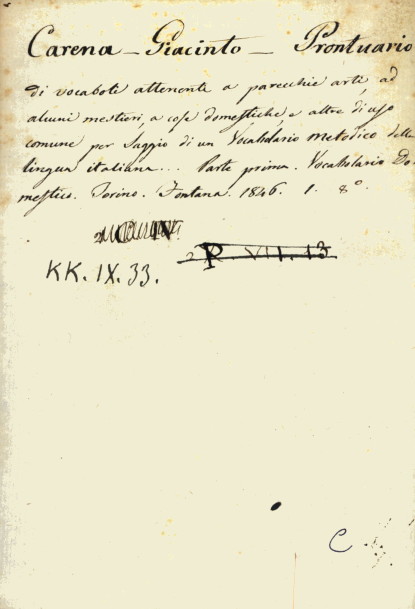 Carena _ Giacinto _ Prontuario
di vocaboli attenenti a parecchie arti, ad
alcuni mestieri, a cose domestiche, e altre di uso
comune per saggio di un Vocabolario metodico della
lingua italiana... Parte prima. Vocabolario Do-
mestico. Torino. Fontana 1846. 1. 8°.
KK. IX. 33.
C